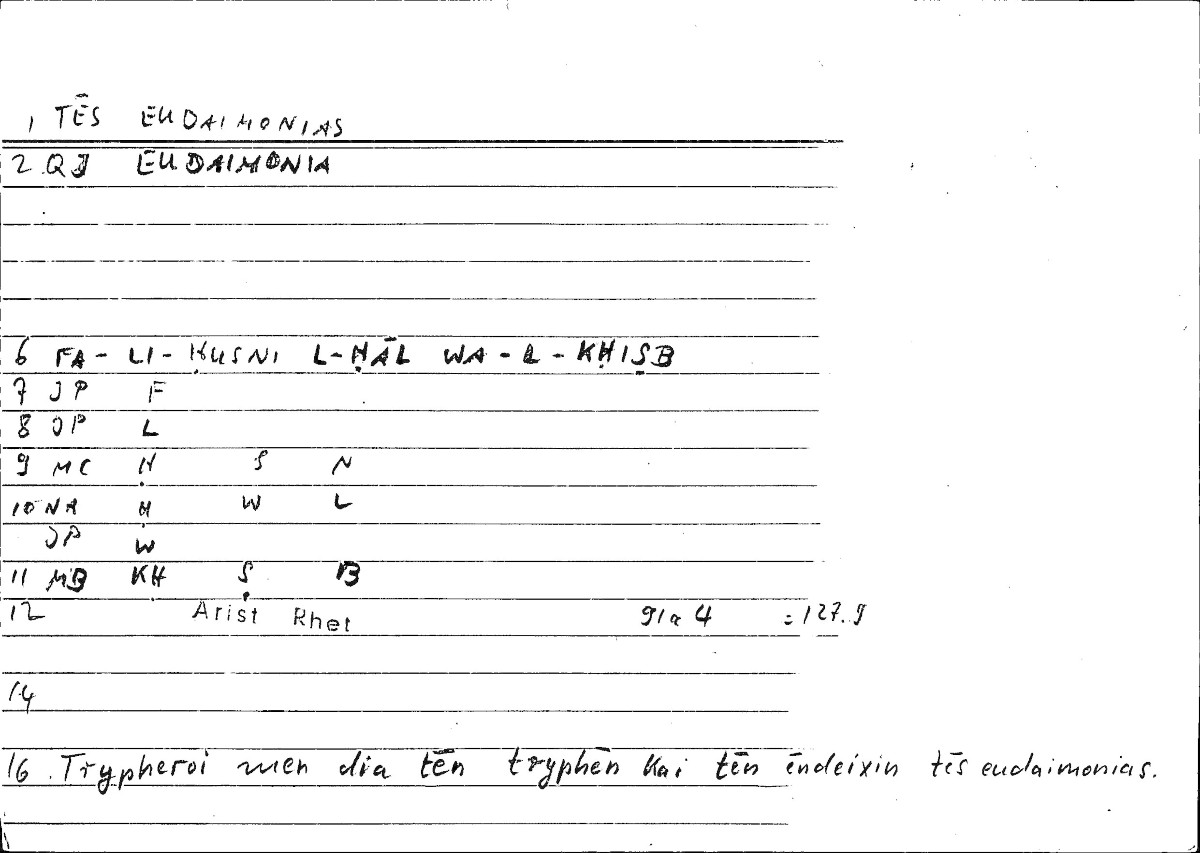 1 TĒS EUDAIMONIAS
2 QJ EUDAIMONIA
6 FA - LI - ḤUSNI L-ḤĀL WA - L - KḤIṢB
7 JP F
8 JP L
9 MC Ḥ S N
10 NA Ḥ W L
JP W
11 MB KḤ Ṣ B
12 Arist Rhet 91a 4 = 127.9
14
16. Trypheroi men dia tēn tryphēn kai tēn ēndeixin tēs eudaimonias.